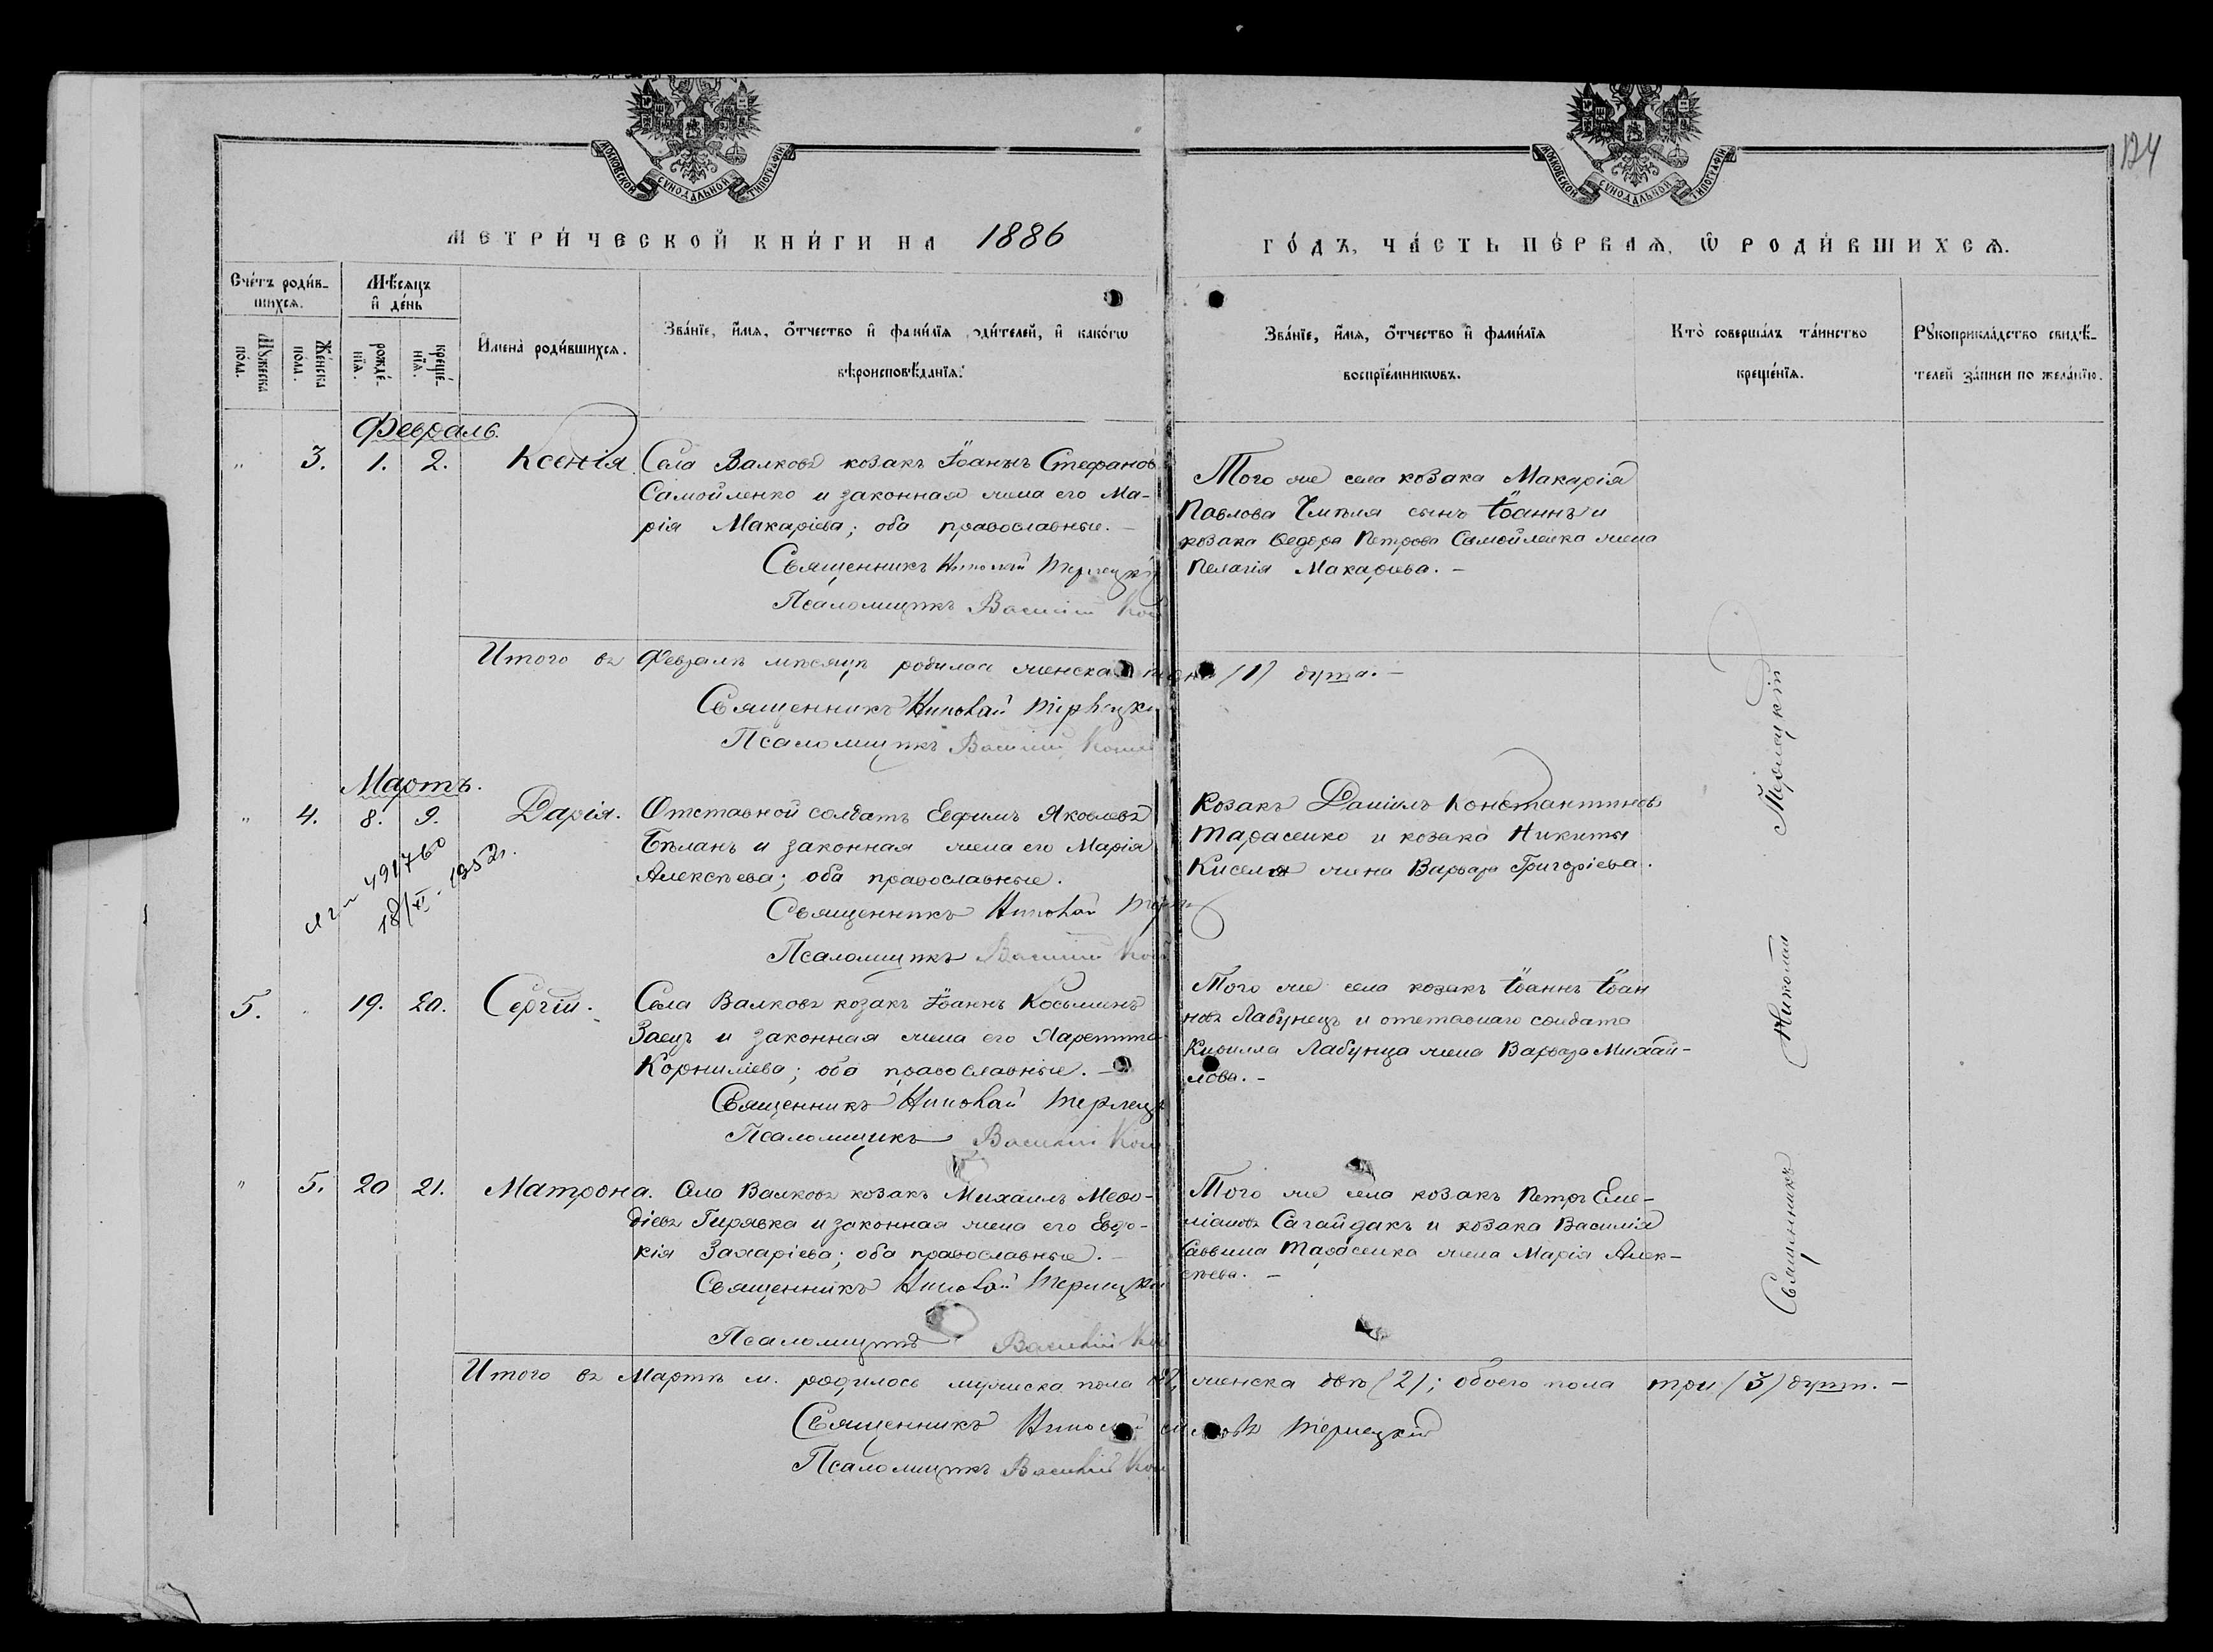 124
МОСКОВСКОЙ СУНОДАЛЬНОЙ ТИПОГРАФІИ
МОСКОВСКОЙ СУНОДАЛЬНОЙ ТИПОГРАФІИ
МЕТРИ́ЧЕСКОЙ КНИ́ГИ НА 1886
ГО́ДЪ, ЧА́СТЬ ПЕ́РВАЯ, Ѽ РОДИ́ВШИХСЯ.
Сче́тъ роди́в-
шихся.
Мѣ́сяцъ
и҆ де́нь
Мꙋ́жеска
по́ла.
Же́нска
по́ла.
рожде́-
нїѧ.
креще́-
нїѧ.
И҆мена̀ роди́вшихся.
Зва́нїе, и҆́мѧ, ѻ҆́тчество и҆ фами́лїѧ одителей, и҆ како́гѡ
вѣроисповѣ́данїѧ.
Зва́нїе, и҆́мѧ, ѻ҆́тчество и҆ фами́лїѧ
воспрїе́мникѡвъ.
Кто̀ соверша́лъ та́инство
креще́нїѧ.
Рꙋкоприкла́дство свидѣ́-
телей за́писи по жела́нїю.
Февраль.
" 3. 1. 2. Ксенія. Села Валковъ козакъ Іоаннъ Стефановъ
Самойленко и законная жена его Ма-
рія Макаріева; оба православные. —
Священникъ Николай Терлецкій
Псаломщикъ Василій
Того же села козака Макарія
Павлова сынъ Іоаннъ и
козака Ѳедора Петрова Самойленка жена
Пелагія Макаріева. —
Итого въ Февралѣ мѣсяцѣ родилась женска /1/ душа. —
Священникъ Николай Терлецкій
Псаломщикъ Василій
Мартъ.
" 4. 8. 9. Дарія. Отставной солдатъ Евфимъ Яковлевъ
Бѣланъ и законная жена его Марія
Алексѣева; оба православные.
Священникъ Николай
Псаломщикъ Василій
491760
18/XI - 1952г.
Козакъ Даніилъ Константиновъ
Тарасенко и козака Никиты
Киселя жена Варвара Григоріева.
5. " 19. 20. Сергій. Села Валковъ козакъ Іоаннъ Косьминъ
Заецъ и законная жена его
Корниліева; оба православные. —
Священникъ Николай Терлецкій
Псаломщикъ Василій
Того же села козакъ Іоаннъ Іоан
новъ Лабунецъ и отставнаго солдата
Кирилла Лабунца жена Варвара Михай-
лова. —
" 5. 20 21. Матрона. Села Валковъ козакъ Михаилъ Меѳо-
діевъ Гирявка и законная жена его Евдо-
кія Захаріева; оба православные. —
Священникъ Николай Терлецкій
Псаломщикъ Василій
Того же села козакъ Петръ Еме-
ліановъ Сагайдакъ и козака Василія
Саввина Тарасенка жена Марія Алек-
сѣева. —
Священникъ Николай Терлецкій
Итого въ Мартѣ м. родилось мужеска пола женска двѣ (2); обоего пола три (3) душъ. —
Священникъ Николай Терлецкій
Псаломщикъ Василій